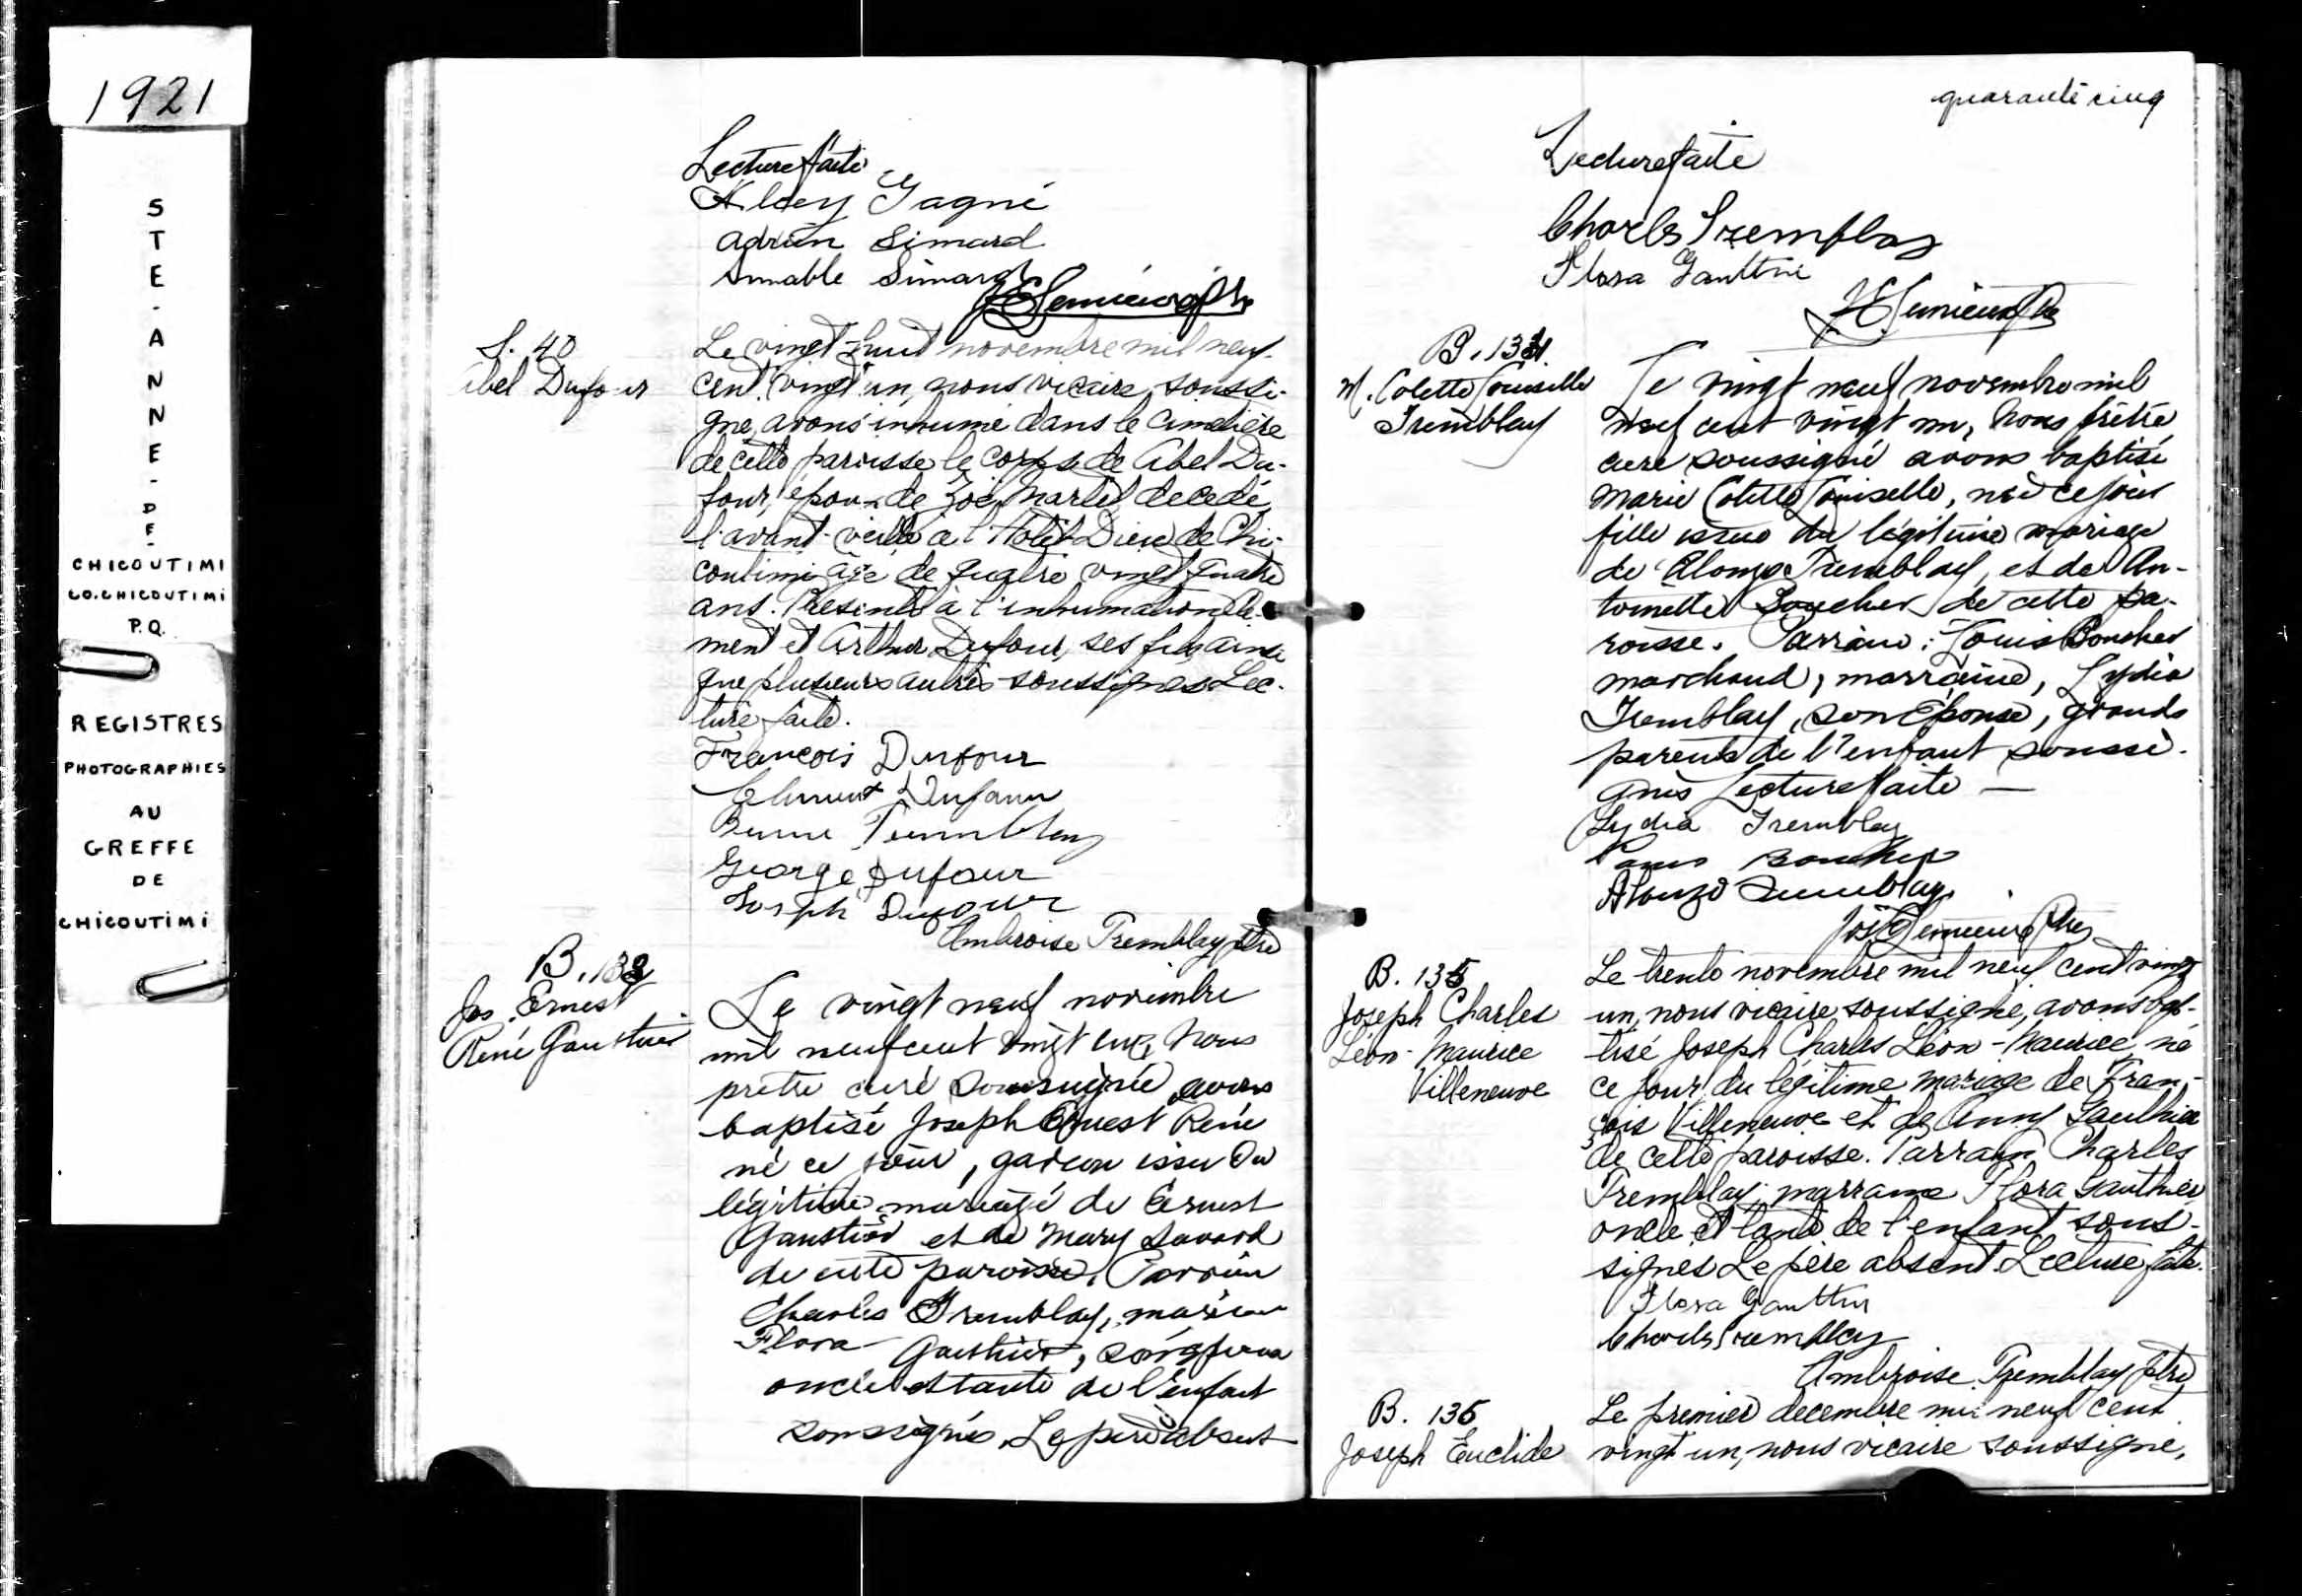 1921
STE-ANNE-DE-
CHICOUTIMI
CO. CHICOUTIMI
P.Q.
REGISTRES
PHOTOGRAPHIES
AU
GREFFE
DE
CHICOUTIMI
Lecture faite
Gagné
Adrien Simard
Aimable Simard
S. 40
Abel Dufour
Le vingt-huit novembre mil neuf
cent vingt un, nous vicaire soussi-
gné, avons inhumé dans le cimetière
de cette paroisse le corps de Abel Du-
four, époux de Zoé Martel décedé
l'avant-veille a l'Hotel Dieu de Chi-
coutimi âgé de quatre vingt quatre
ans. Présents à l'inhumation Clé-
ment et Arthur Dufour, ses fils, ainsi
que plusieurs autres soussignés. Lec-
ture faite.
François Dufour
Clement Dufour
Tremblay
George Dufour
Joseph Dufour
Ambroise Tremblay ptre
B. 133
Jos. Ernest
René Gauthier
Le vingt neuf novembre
mil neuf cent vingt un, Nous
prêtre curé soussigné avons
baptisé Joseph Ernest René
né ce jour, garçon issu du
légitime mariage de Ernest
Gauthier et de Mary Savard
de cette paroisse. Parrain
Charles Tremblay, marraine
Flora Gauthier,
oncle et tante de l'enfant
soussignés. Le père absent
quarante cinq
Lecture faite
Charles Tremblay
Flora Gauthier
B. 134.
M. Colette Louiselle
Tremblay
Le vingt neuf novembre mil
neuf cent vingt un, Nous prêtre
curé soussigné avons baptisé
Marie Colette Louiselle, née ce jour
fille issue du légitime mariage
de Alonzo Tremblay, et de An-
toinette Boucher de cette pa-
roisse. Parrain: Louis Boucher
marchand, marraine, Lydia
Tremblay, son Épouse, grands
parents de l'enfant soussi-
gnés Lecture faite —
Lydia Tremblay
Louis Boucher
Alonzo Tremblay
Jos Lemieux Ptre
B. 135
Joseph Charles
Léon-Maurice
Villeneuve
Le trente novembre mil neuf cent vingt
un, nous vicaire soussigné, avons bap-
tisé Joseph Charles Léon-Maurice, né
ce jour, du légitime mariage de Fran-
çois Villeneuve et de Anny Gauthier
de cette paroisse. Parrain Charles
Tremblay; marraine Flora Gauthier,
oncle et tante de l'enfant, sous-
signés Le père absent. Lecture faite.
Flora Gauthier
Charles Tremblay
Ambroise Tremblay ptre
B. 136
Joseph Euclide
Le premier decembre mil neuf cent
vingt un, nous vicaire soussigné,